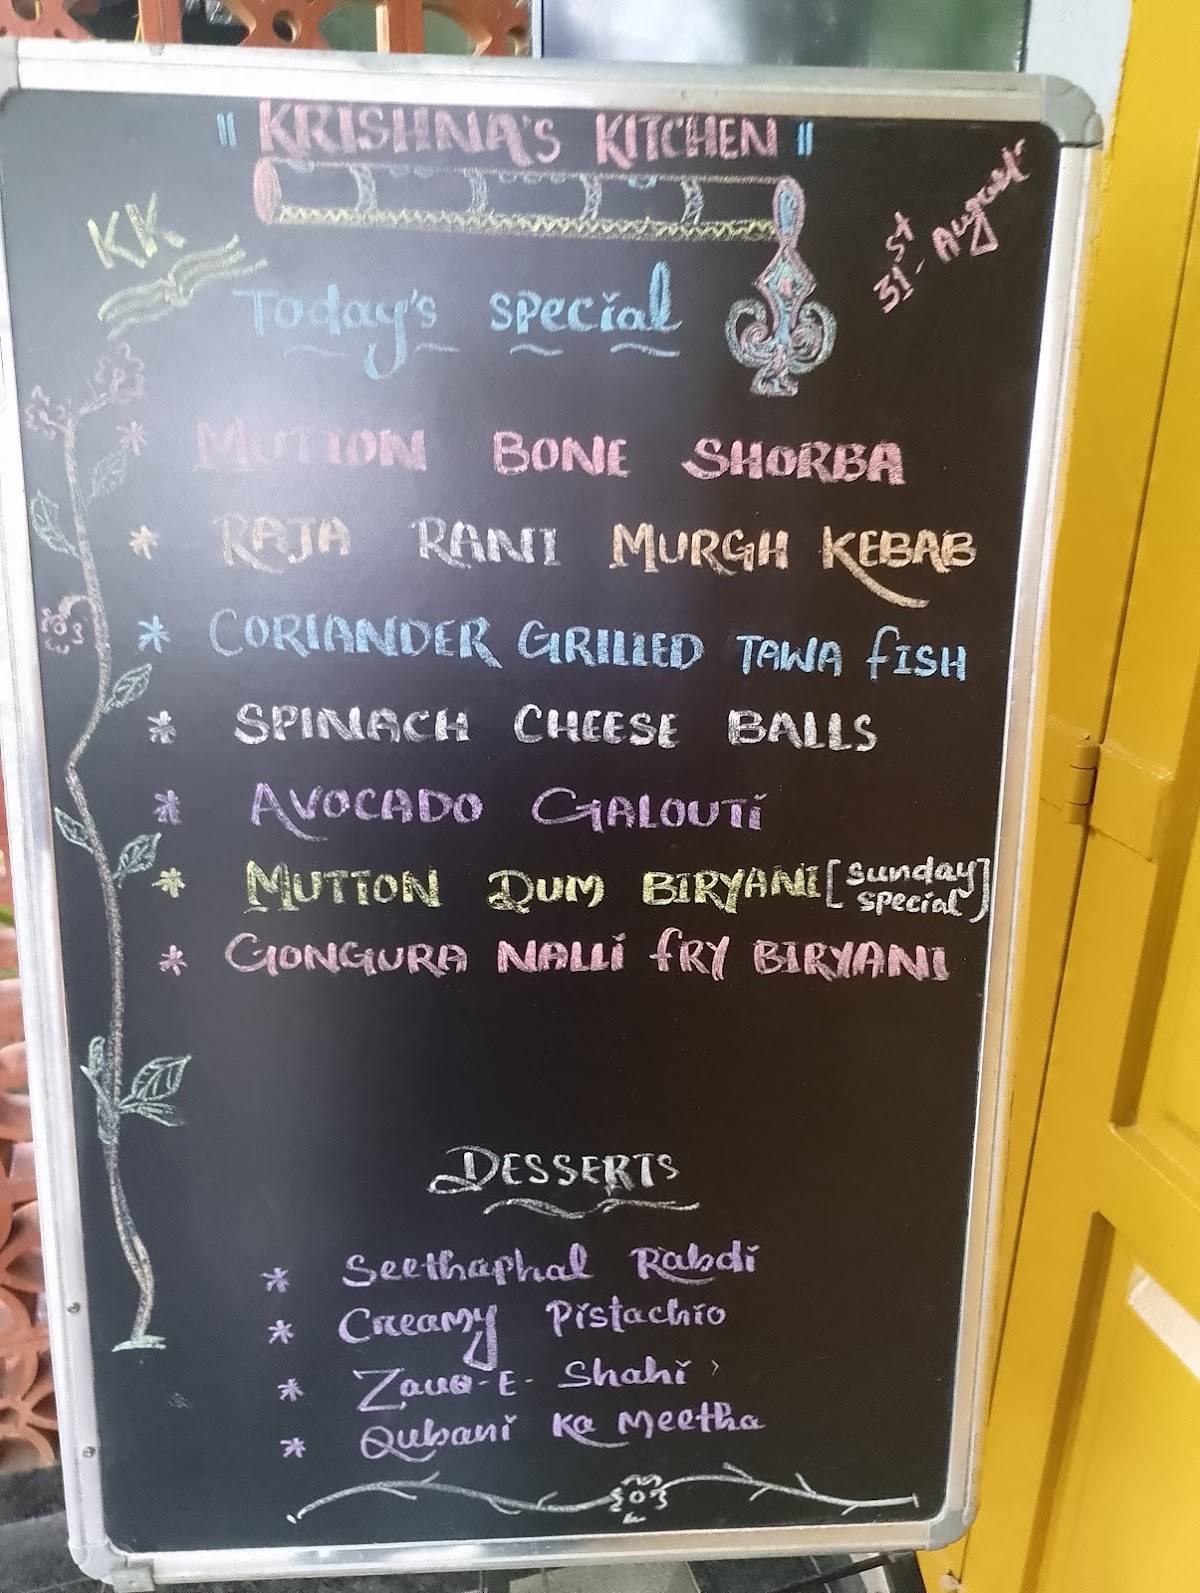 " KRISHNA'S KITCHEN "
KK
31st August
Today's special
* MUTTON BONE SHORBA
* RAJA RANI MURGH KEBAB
* CORIANDER GRILLED TAWA fISH
* SPINACH CHEESE BALLS
* AVOCADO GALOUTi
* MUTTON DUM BIRYANI [sunday special]
* GONGURA NALLi fRY BIRYANI
DESSERTS
* Seethaphal Rabdi
* Creamy Pistachio
* Zauq-E-Shahi
* Qubani Ka Meetha